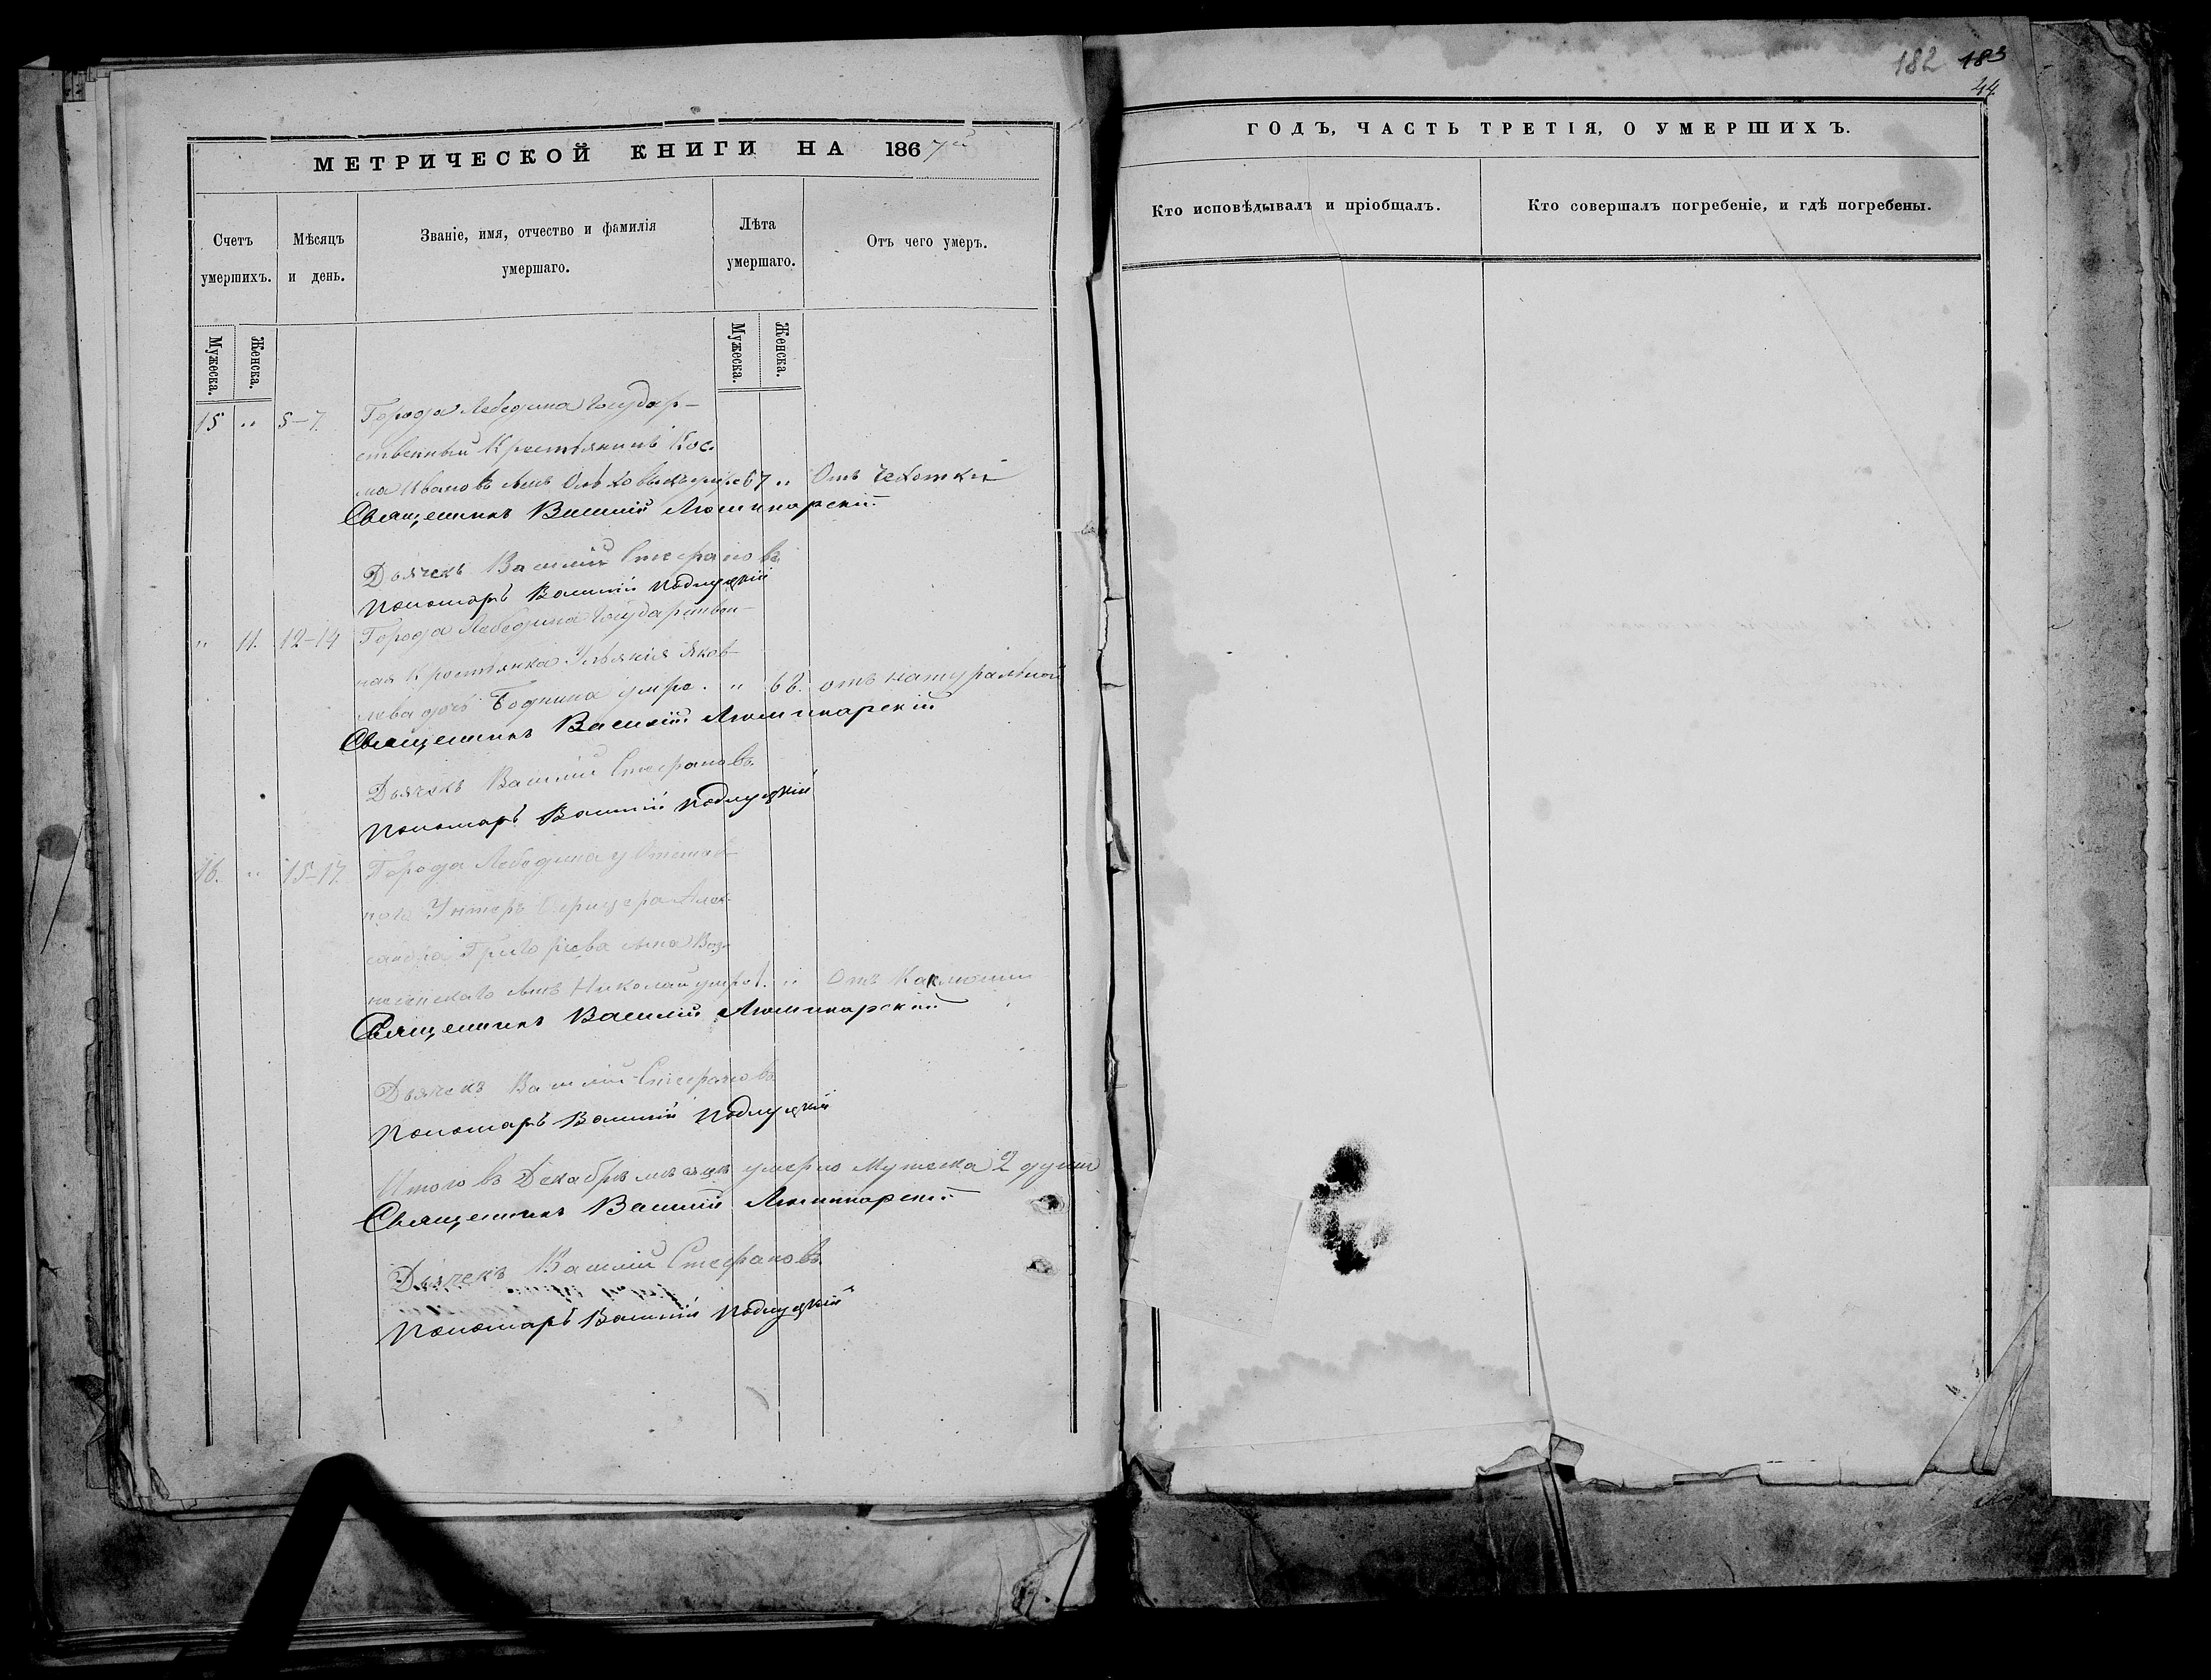 МЕТРИЧЕСКОЙ КНИГИ НА 1867й
Счетъ умершихъ.
Мѣсяцъ и день.
Званіе, имя, отчество и фамилія умершаго.
Лѣта умершаго.
Отъ чего умеръ.
Мужеска.
Женска.
Мужеска.
Женска.
15 „ 5-7. Города Лебедина Государ-
ственный Крестьянинъ Кос-
ма Ивановъ сынъ 67 „ Отъ чахотки
Священникъ Василій
Дьячекъ Василій Стефановъ
Пономарь Василій Подлуцкій
„ 11. 12-14 Города Лебедина Государствен-
ная Крестьянка Яков-
лева дочь умре. „ отъ натуральной
Священникъ Василій
Дьячекъ Василій Стефановъ
Пономарь Василій Подлуцкій
16. „ 15-17. Города Лебедина у Отстав-
наго Унтеръ Офицера Алек-
сандра Григорьева сына Воз-
несенскаго сынъ Николай умре 1. „ Отъ Каклюши
Священникъ Василій
Дьячекъ Василій Стефановъ
Пономарь Василій Подлуцкій
Итого въ Декабрѣ мѣсяцѣ умерло Мужеска 2 души
Священникъ Василій
Дьячекъ Василій Стефановъ
Пономарь Василій Подлуцкій
182 183
44
ГОДЪ, ЧАСТЬ ТРЕТІЯ, О УМЕРШИХЪ.
Кто исповѣдывалъ и пріобщалъ.
Кто совершалъ погребеніе, и гдѣ погребены.